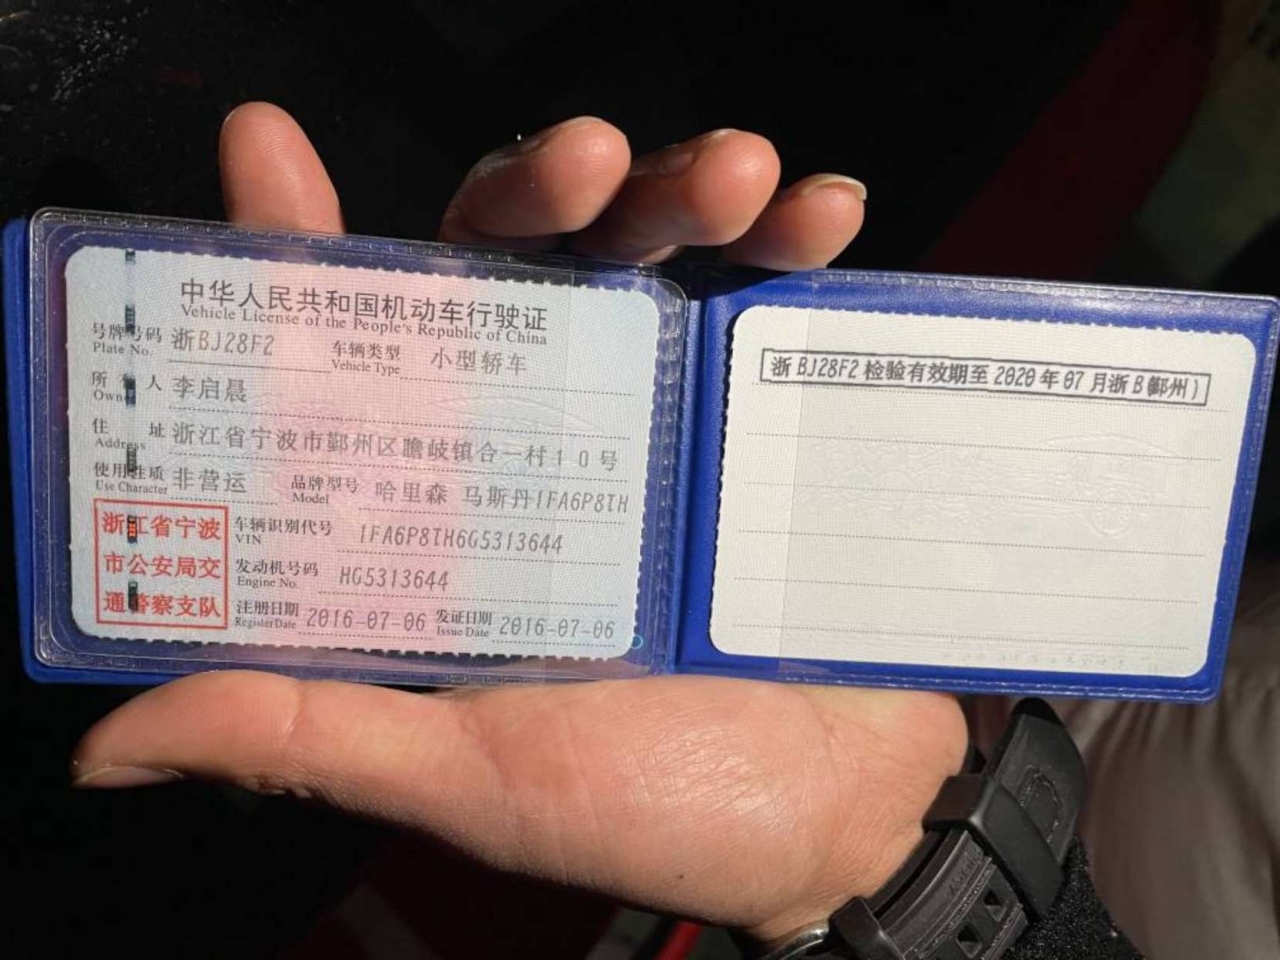 中华人民共和国机动车行驶证
Vehicle License of the People's Republic of China
号牌号码 浙BJ28F2 车辆类型 小型轿车
Plate No. Vehicle Type
所有人 李启晨
Owner
住址 浙江省宁波市鄞州区瞻岐镇合一村10号
Address
使用性质 非营运 品牌型号 哈里森 马斯丹1FA6P8TH
Use Character Model
浙江省宁波
市公安局交
通警察支队
车辆识别代号 1FA6P8TH6G5313644
VIN
发动机号码 HG5313644
Engine No.
注册日期 2016-07-06 发证日期 2016-07-06
Register Date Issue Date
浙BJ28F2 检验有效期至 2020年07月浙B(鄞州)